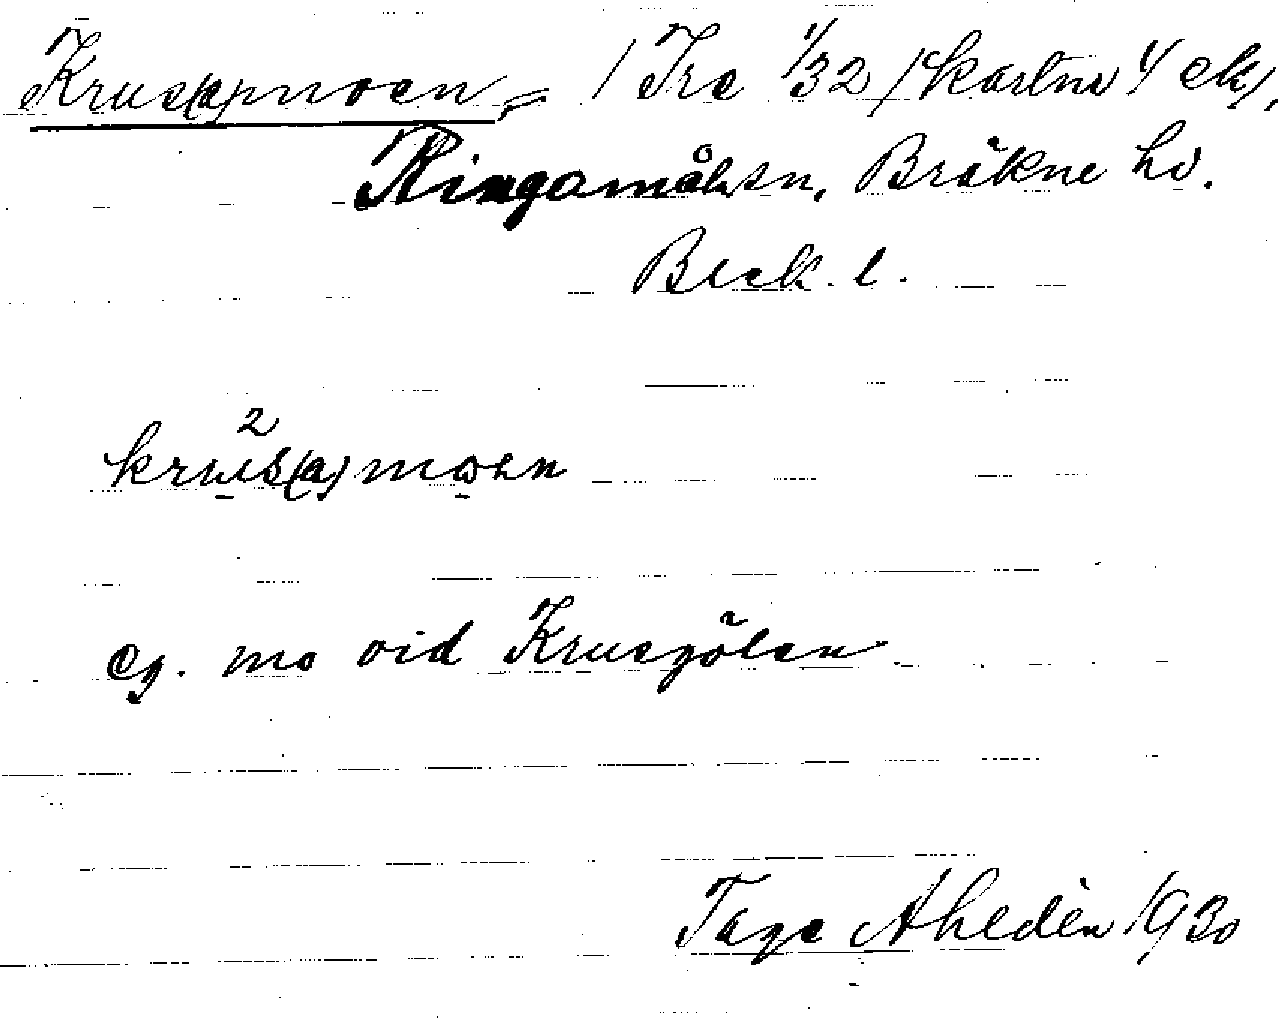 Krus(a)moen, / Tre 1/32 / kartnr 4 ek),
Ringamåla sn, Bräkne hd.
Blek. l.
2
krus(a)moen
eg. mo vid Krusgölen
Tage Ahldén 1930